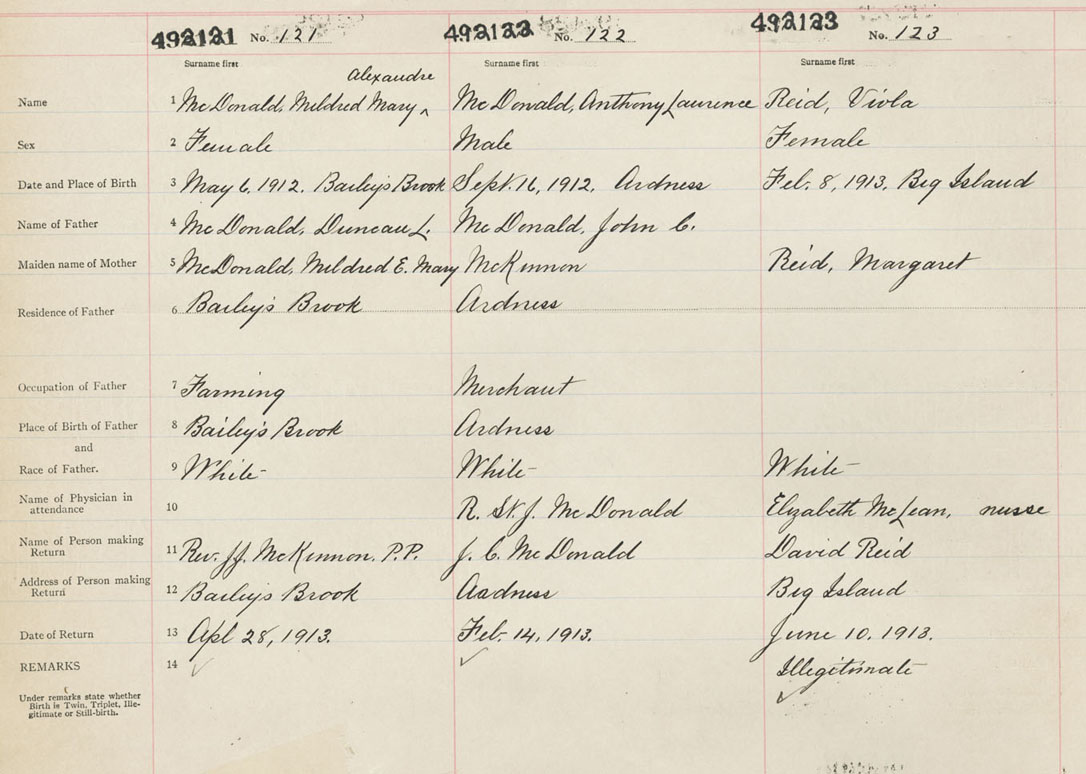 492121 No. 121 492122 No. 122 492123 No. 123
Surname first Surname first Surname first
Alexandre
Name 1 McDonald, Mildred Mary ^ McDonald, Anthony Laurence Reid, Viola
Sex 2 Female Male Female
Date and Place of Birth 3 May 6, 1912. Bailey's Brook Sept. 16, 1912, Ardness Feb. 8, 1913, Big Island
Name of Father 4 McDonald, Duncan L. McDonald, John C.
Maiden name of Mother 5 McDonald, Mildred E. Mary McKinnon Reid, Margaret
Residence of Father 6 Bailey's Brook Ardness
Occupation of Father 7 Farming Merchant
Place of Birth of Father 8 Bailey's Brook Ardness
and
Race of Father. 9 White White White
Name of Physician in
attendance 10 R. St. J. McDonald Elizabeth McLean, nurse
Name of Person making
Return 11 Rev. J.J. McKinnon. P.P. J. C. McDonald David Reid
Address of Person making
Return 12 Bailey's Brook Ardness Big Island
Date of Return 13 Apl 28, 1913. Feb. 14, 1913. June 10, 1913.
REMARKS 14 Illegitimate
Under remarks state whether
Birth is Twin, Triplet, Ille-
gitimate or Still-birth.